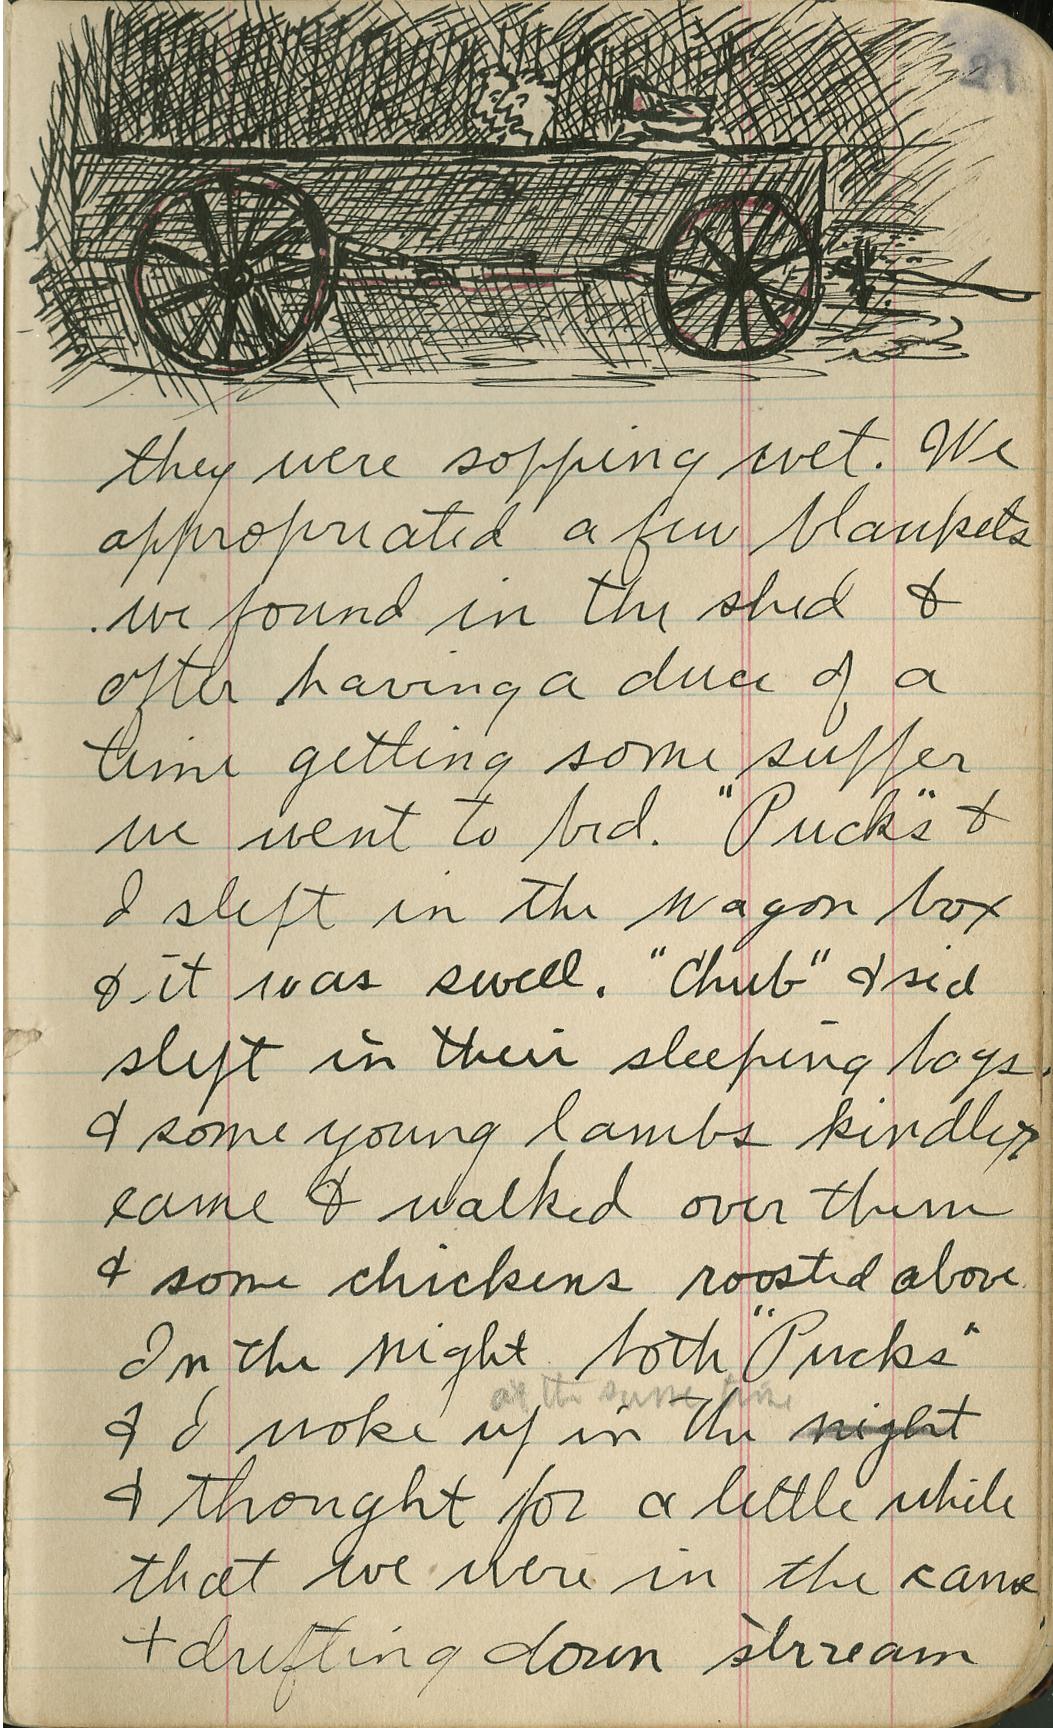 21
they were sopping wet. We
appropriated a few blankets
we found in the shed &
after having a duce of a
time getting some supper
we went to bed. "Pucks" &
I slept in the wagon box
& it was swell. "Chub" & sid
slept in their sleeping bags.
& some young lambs kindley
came & walked over them
& some chickens roosted above
In the night both "Pucks"
at the same time
& I woke up in the night
& thought for a little while
that we were in the canoe
+ drifting down strream